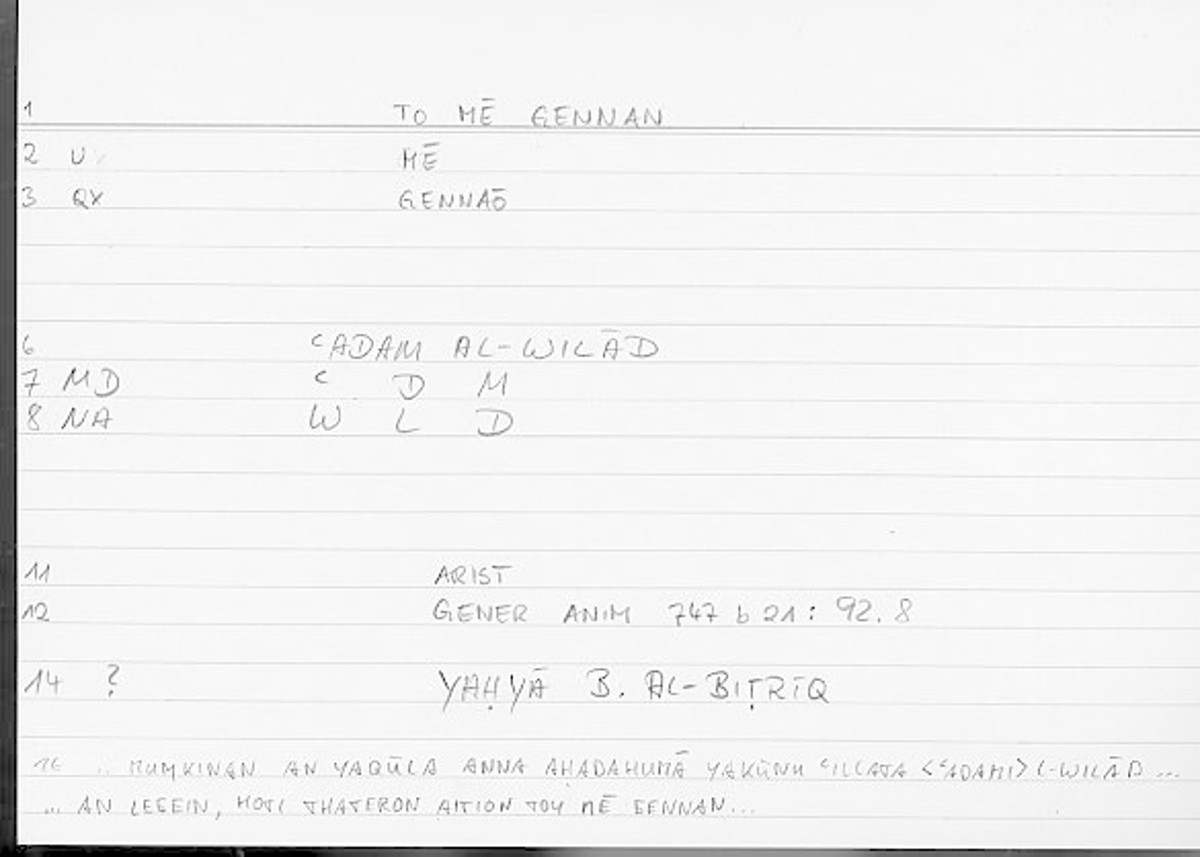 1 TO MĒ GENNAN
2 U MĒ
3 QX GENNAŌ
6 ʿADAM AL-WILĀD
7 MD ʿ D M
8 NA W L D
11 ARIST
12 GENER ANIM 747 b 21: 92.8
14 ? YAḤYĀ B. AL-BIṬRĪQ
16 .. MUMKINAN AN YAQŪLA ANNA AHADAHUMĀ YAKŪNU ʿILLATA <ʿADAMI> L-WILĀD ...
... AN LEGEIN, HOTI THATERON AITION TOY MĒ GENNAN...